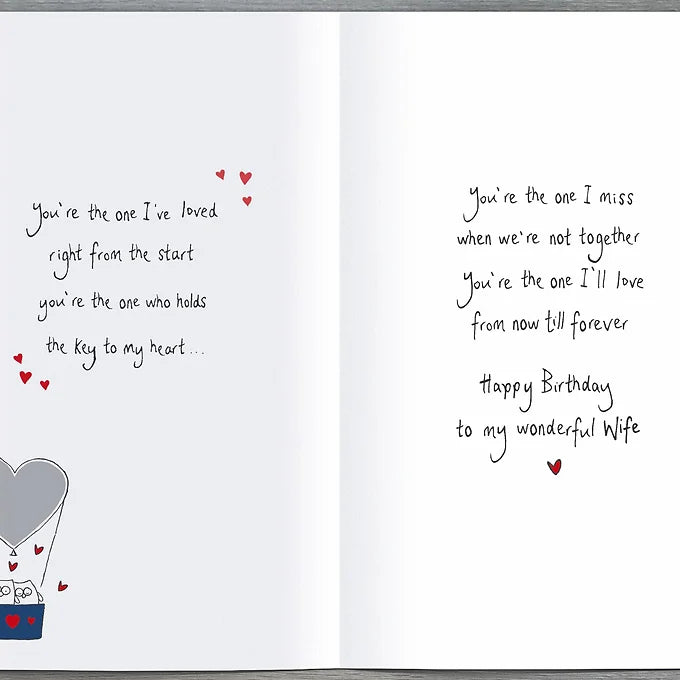 You're the one I've loved
right from the start
you're the one who holds
the key to my heart...
You're the one I miss
when we're not together
You're the one I'll love
from now till forever
Happy Birthday
to my wonderful Wife